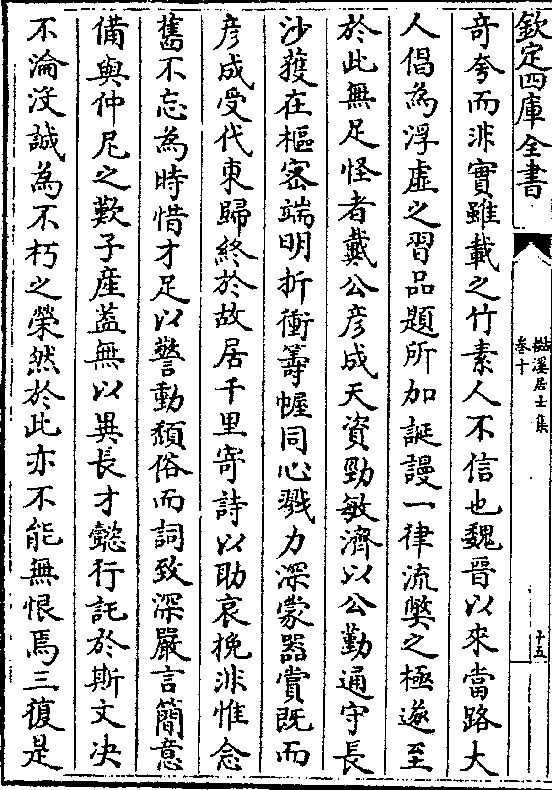 欽定四庫全書
樾溪居士集
卷十
十五
奇夸而非實雖載之竹素人不信也魏晉以來當路大
人倡為浮虚之習品題所加誕謾一律流獘之極遂至
於此無足怪者戴公彦成天資勁敏濟以公勤通守長
沙獲在樞密端明折衝籌幄同心戮力深蒙器賞既而
彦成受代東歸終於故居千里寄詩以助哀挽非惟念
舊不忘為時惜才足以警動頹俗而詞致深嚴言簡意
備與仲尼之歎子産葢無以異長才懿行託於斯文决
不淪沒誠為不朽之榮然於此亦不能無恨焉三復是